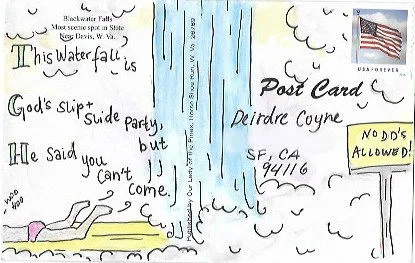 Blackwater Falls
Most scenic spot in State
Near Davis, W. Va.
This Waterfall is
God's slip + slide party,
but
He said you can't come.
WOO HOO
Published by Our Lady of the Pines, Horse Shoe Run, W. Va. 26769
Post Card
Deirdre Coyne
SF, CA
94116
USA FOREVER
NO DD'S
ALLOWED!